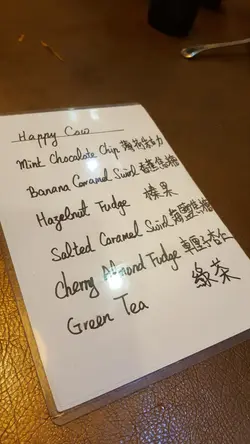 Happy Cow
Mint Chocolate Chip 薄荷朱古力
Banana Caramel Swirl 香蕉焦糖
Hazelnut Fudge 榛果
Salted Caramel Swirl 海鹽焦糖
Cherry Almond Fudge 車厘杏仁
Green Tea 綠茶